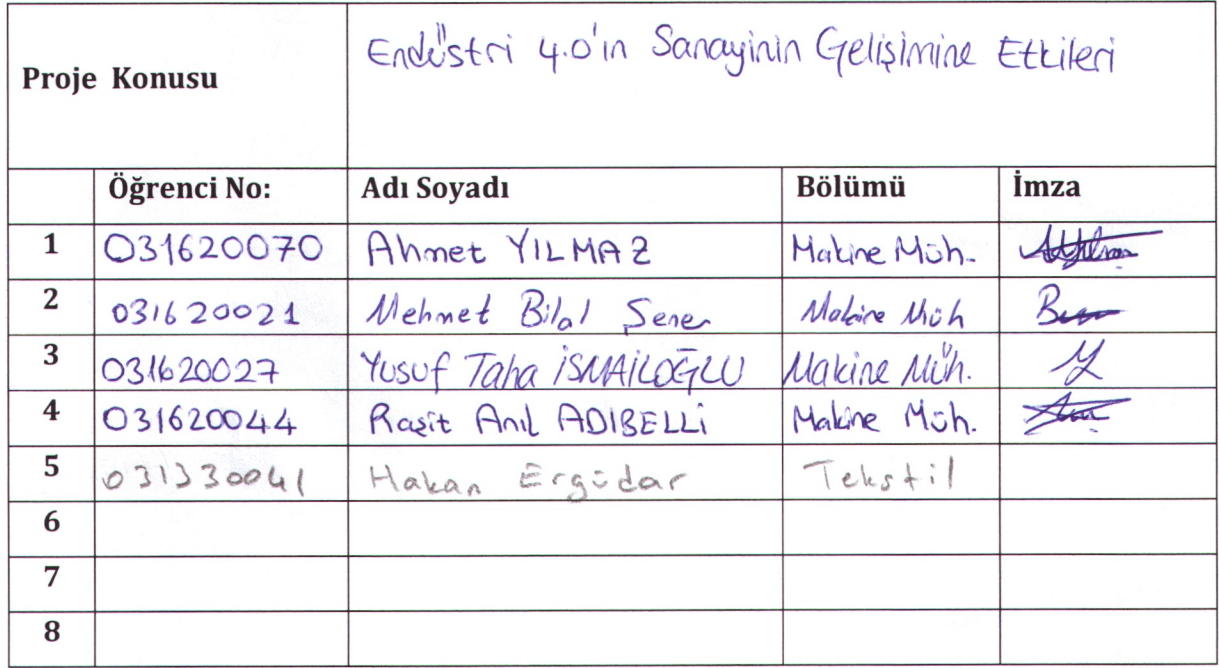 Proje Konusu Endüstri 4.0'ın Sanayinin Gelişimine Etkileri
Öğrenci No: Adı Soyadı Bölümü İmza
1 031620070 Ahmet YILMAZ Makine Müh.
2 031620021 Mehmet Bilal Şener Makine Müh
3 031620027 Yusuf Taha İSMAİLOĞLU Makine Müh.
4 031620044 Raşit Anıl ADIBELLİ Makine Müh.
5 031330041 Hakan Ergüdar Tekstil
6
7
8